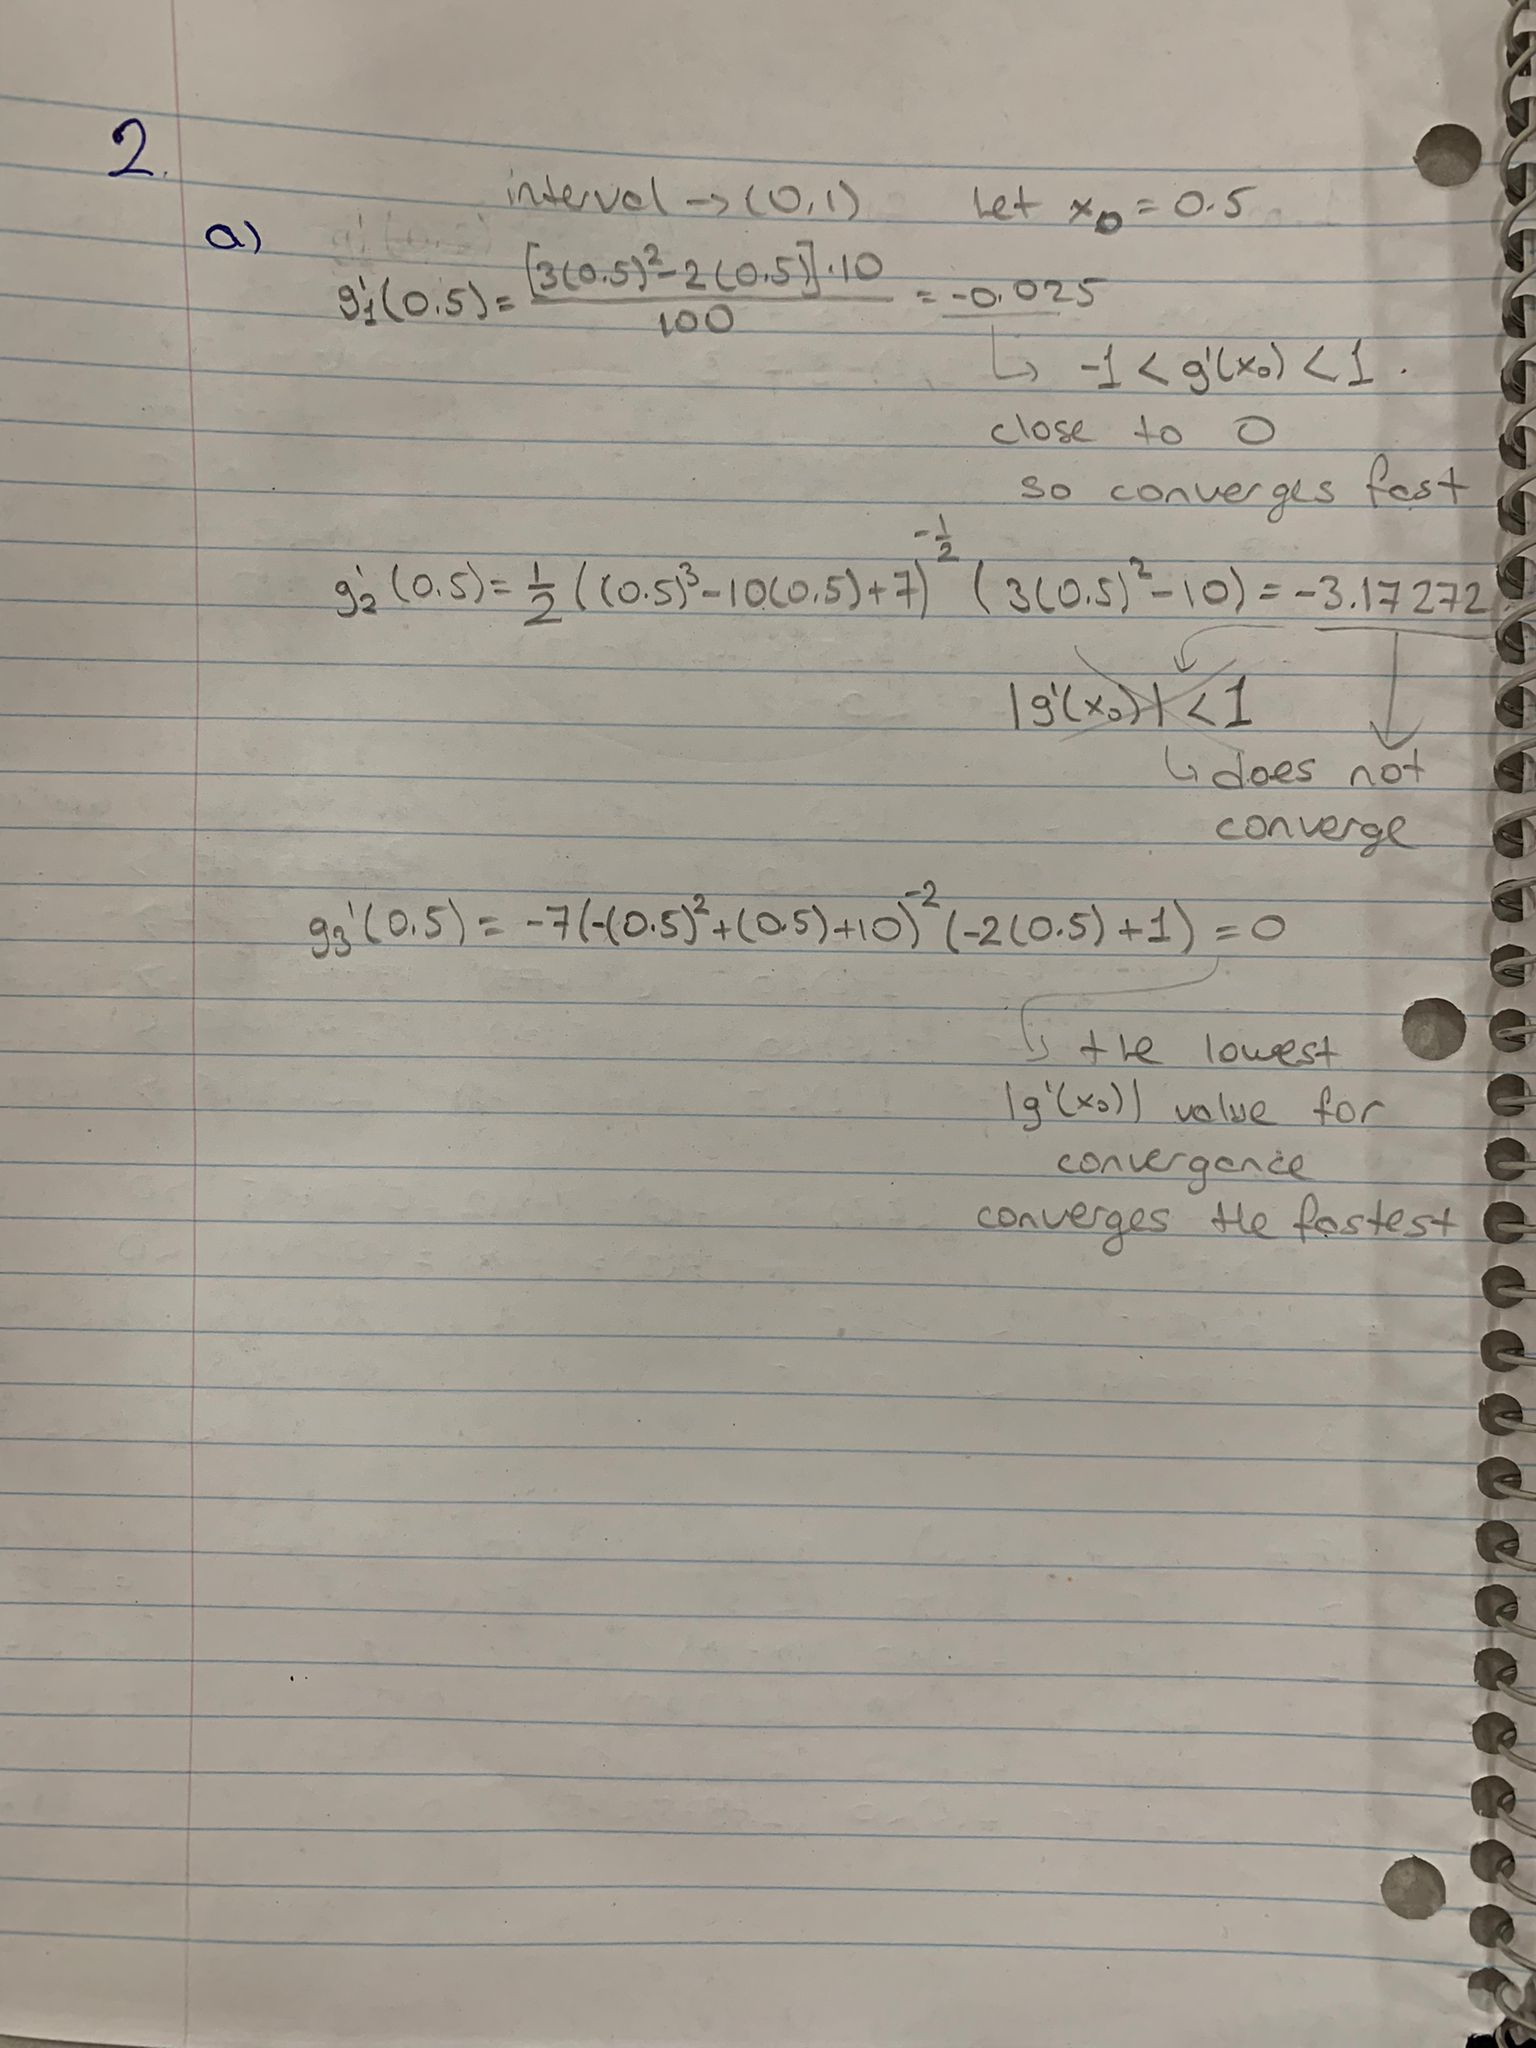 2.
interval → (0,1) Let x₀ = 0.5
a)
g₁'(0.5) = [3(0.5)² - 2(0.5)]·10 / 100 = -0.025
↳ -1 < g'(x₀) < 1.
close to 0
so converges fast
g₂'(0.5) = 1/2 ((0.5)³ - 10(0.5) + 7)^(-1/2) (3(0.5)² - 10) = -3.17272
|g'(x₀)| < 1
↳ does not
converge
g₃'(0.5) = -7(-(0.5)² + (0.5) + 10)⁻² (-2(0.5) + 1) = 0
↳ the lowest
|g'(x₀)| value for
convergence
converges the fastest